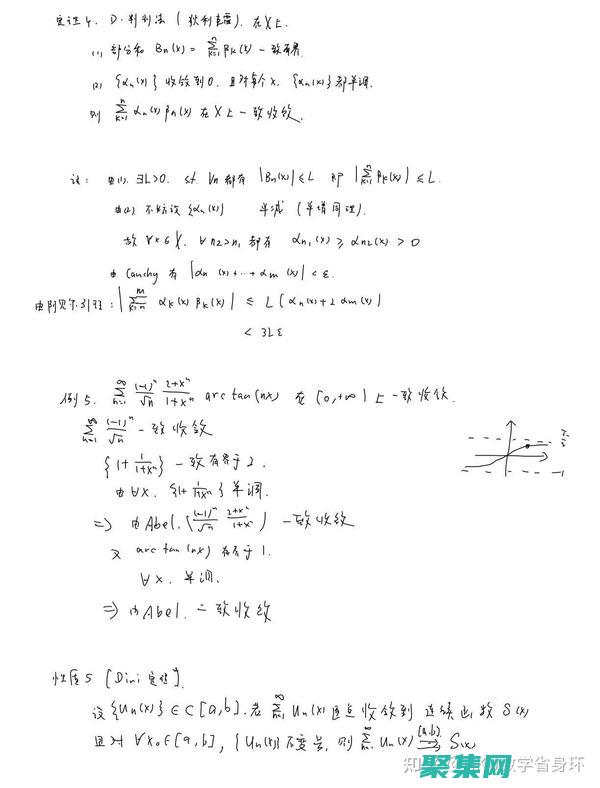 定理4. D-判别法 (狄利克雷). 在X上
(1) 部分和 Bn(x) = ∑_{k=1}^{n} βk(x) 一致有界.
(2) {αn(x)} 收敛到0. 且对每个x, {αn(x)}都单调.
则 ∑_{k=1}^{n} αn(x) βn(x) 在X上一致收敛.
证: 由(1). ∃L>0. st. ∀n 都有 |Bn(x)| ≤ L 即 |∑_{k=1}^{n} βk(x)| ≤ L.
由(2). 不妨设 {αn(x)} 单减 (单增同理).
故 ∀x∈X. ∀n2>n1 都有 αn1(x) ≥ αn2(x) > 0
由 Cauchy 有 |αn(x)+…+αm(x)| < ε.
由阿贝尔引理: |∑_{k=n}^{m} αk(x) βk(x)| ≤ L(αn(x)+2αm(x))
< 3Lε
例5. ∑_{n=1}^{∞} (-1)^n/√n (2+x^n)/(1+x^n) arctan(nx) 在 [0,+∞) 上一致收敛.
∑_{n=1}^{∞} (-1)^n/√n 一致收敛
{1+1/(1+x^n)} 一致有界于2.
由∀x. {1+1/(1+x^n)} 单调.
⇒ 由Abel. ((-1)^n/√n (2+x^n)/(1+x^n)) 一致收敛
又 arctan(nx) 有界于
∀x. 单调.
⇒ 由Abel. 一致收敛
性质5 [Dini定理].
设{Un(x)}∈C[a,b]. 若 ∑_{n=1}^{∞} Un(x) 逐点收敛到 连续函数 S(x)
且对 ∀x0∈[a,b], {Un(x)}不变号, 则 ∑_{n=1}^{∞} Un(x) ⇉[a,b] S(x)
知乎 数学省身环
聚集网